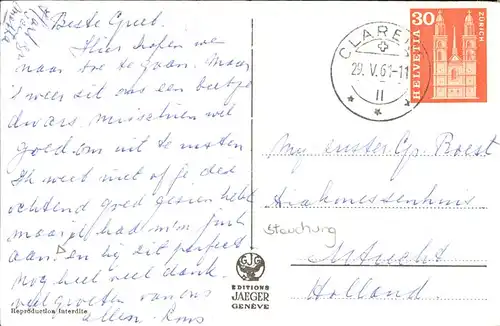 Beste Greet.
Hier hopen we
naar toe te gaan. Maar
't weer zit ons een beetje
dwars, misschien wel
goed om uit te rusten
Ik weet niet of je die
ochtend goed gezien hebt
maar je had m'n
aan. en hij zit perfect
nog heel veel dank.
veel groeten van ons
allen.
Reproduction interdite
EDITIONS
JAEGER
GENÈVE
CLARENS
29.V.61-11
II
30
HELVETIA
ZÜRICH
Zuster
Diakonessenhuis
Utrecht
Holland.